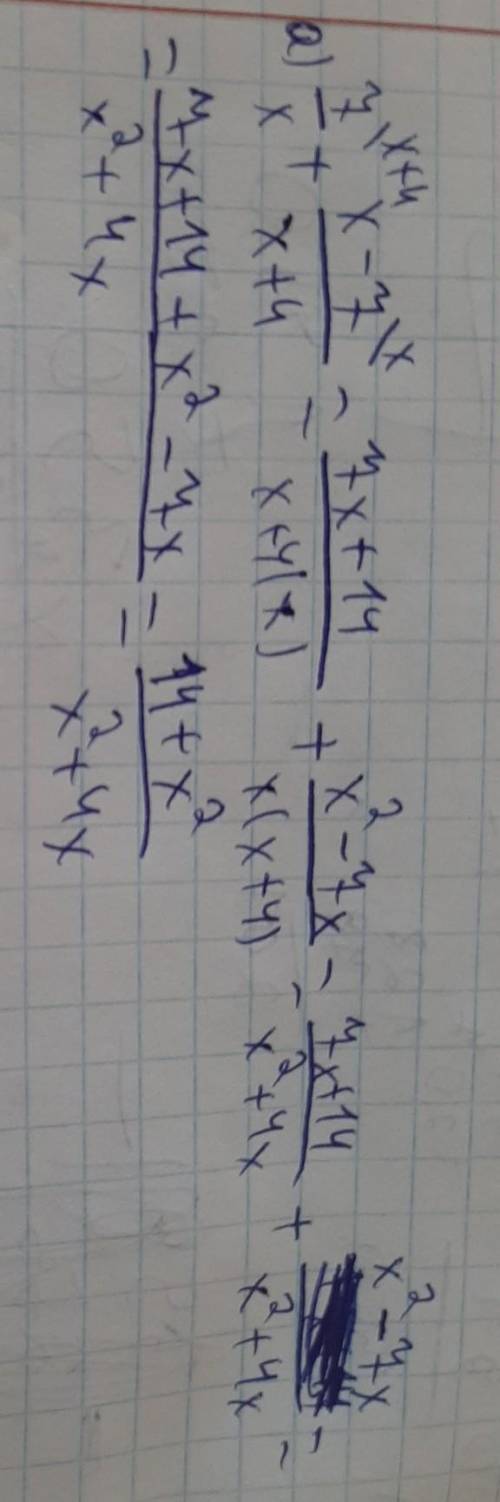 а) 7\x+4/x + x-7\x/x+4 = 7x+14/x+4(x) + x²-7x/x(x+4) = 7x+14/x²+4x + x²-7x/x²+4x =
= 7x+14+x²-7x/x²+4x = 14+x²/x²+4x